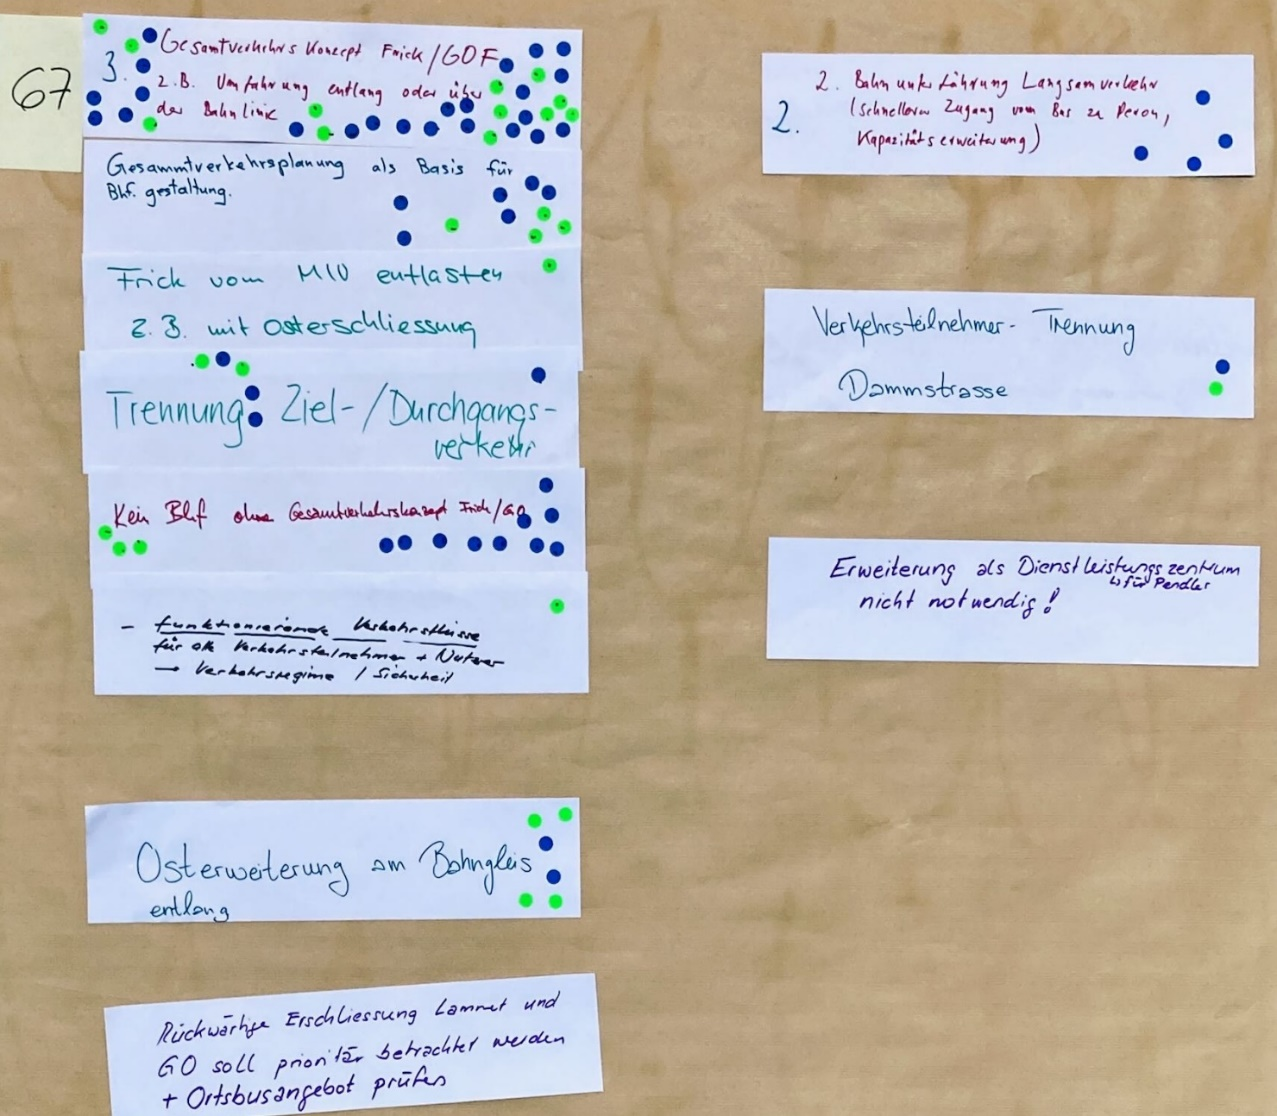 67
3. Gesamtverkehrs Konzept Frick/GOF
z.B. Umfahrung entlang oder über
der Bahnlinie
Gesammtverkehrsplanung als Basis für
Bhf. gestaltung.
Frick vom MIV entlasten
z.B. mit Osterschliessung
Trennung Ziel-/Durchgangs-
verkehr
Kein Bhf ohne Gesamtverkehrskonzept Frick/GO
- funktionierende Verkehrsflüsse
für alle Verkehrsteilnehmer + Nutzer
→ Verkehrsregime / Sicherheit
Osterweiterung am Bahngleis
entlang
Rückwärtige Erschliessung Lammet und
GO soll prioritär betrachtet werden
+ Ortsbusangebot prüfen
2. Bahnunterführung Langsamverkehr
2. (schnelleren Zugang vom Bus zu Peron,
Kapazitätserweiterung)
Verkehrsteilnehmer- Trennung
Dammstrasse
Erweiterung als Dienstleistungszentrum
↳ für Pendler
nicht notwendig!